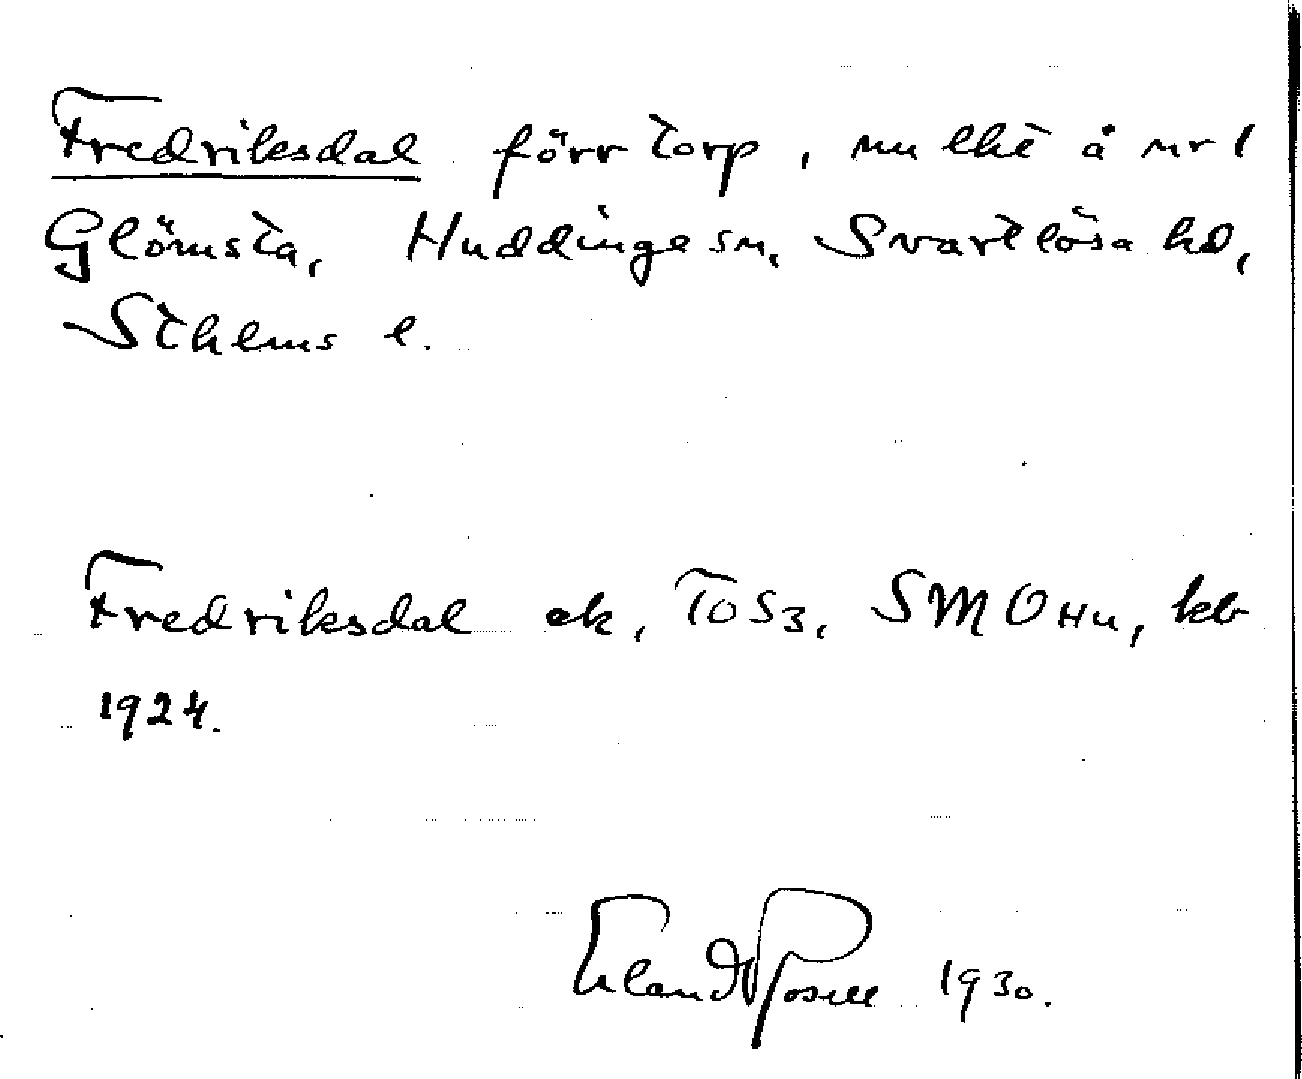 Fredriksdal förr torp, nu lht å nr 1
Glömsta, Huddinge sn, Svartlösa hd,
Sthlms l.
Fredriksdal ek, TOS3, SMOHu, kb
1924.
Erland Rosell 1930.